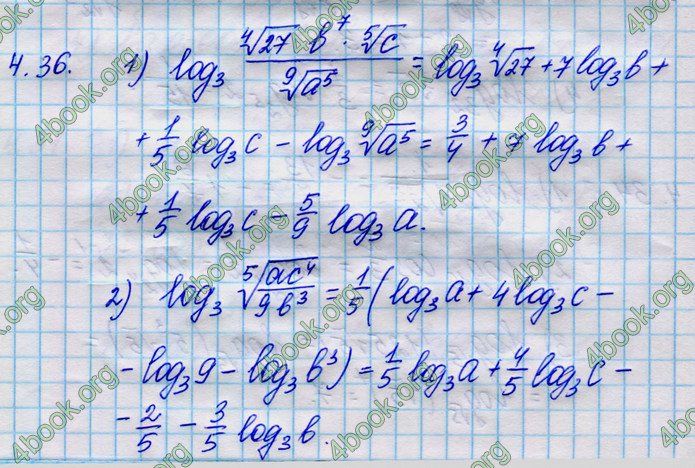 4.36. 1) log₃ (⁴√27 b⁷ · ⁵√c)/(⁹√a⁵) = log₃ ⁴√27 + 7 log₃ b +
+ 1/5 log₃ c − log₃ ⁹√a⁵ = 3/4 + 7 log₃ b +
+ 1/5 log₃ c − 5/9 log₃ a.
2) log₃ ⁵√(ac⁴/9b³) = 1/5 (log₃ a + 4 log₃ c −
− log₃ 9 − log₃ b³) = 1/5 log₃ a + 4/5 log₃ c −
− 2/5 − 3/5 log₃ b.
4book.org